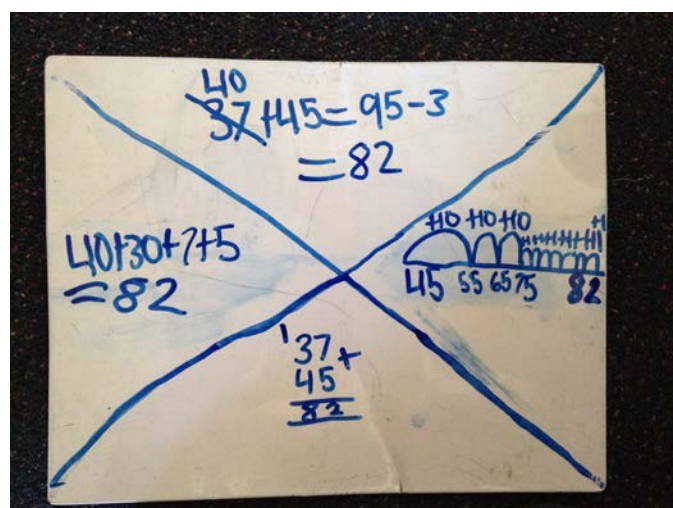 40
37+45=95-3
=82
40+30+7+5
=82
+10 +10 +10 +1+1+1+1+1+1+1
45 55 65 75 82
1
37+
45
82